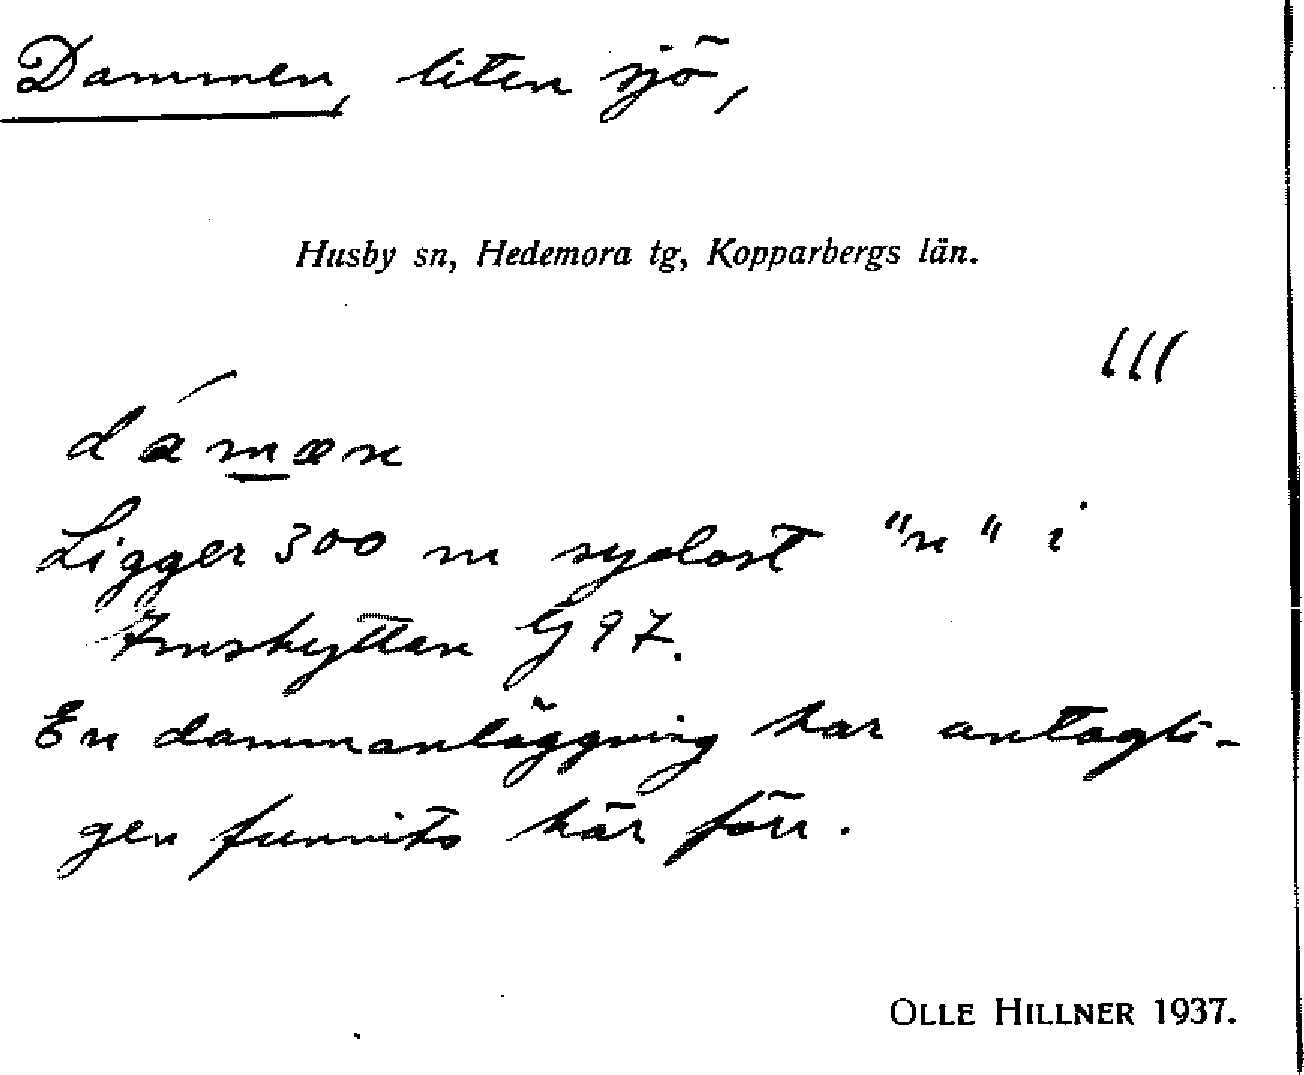 Dammen, liten sjö,
Husby sn, Hedemora tg, Kopparbergs län.
lll
dámæn
Ligger 300 m sydost "n" i
Immshyttan G 97.
En dammanläggning har antagli-
gen funnits här förr.
OLLE HILLNER 1937.